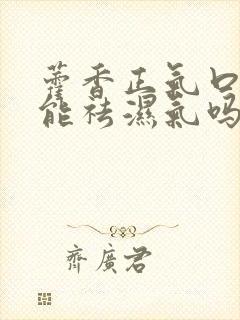 藿香正氣口
能祛濕氣嗎
齊廣君